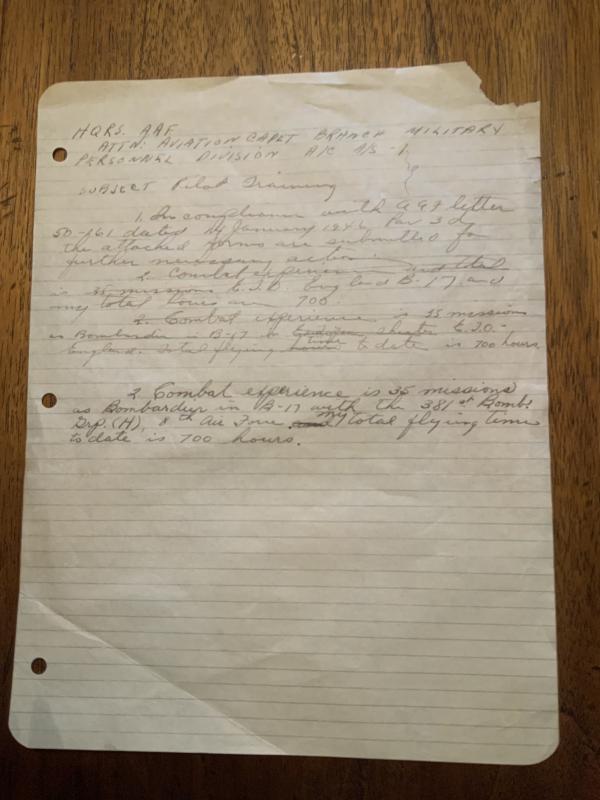 HQRS. AAF
ATTN: AVIATION CADET BRANCH MILITARY
PERSONNEL DIVISION A/C A/S -1
SUBJECT Pilot Training
1. In compliance with AAF letter
50-161 dated 14 January 1946 Par 3 d
the attached forms are submitted for
further necessary action.
2. Combat experience and total
is 35 missions E.T.O. England B-17 and
my total hours are 700.
2. Combat experience is 35 missions
as Bombardier in B-17 in theater E.T.O. -
England. Total flying hours time to date is 700 hours
2 Combat experience is 35 missions
as Bombardier in B-17 with the 381st Bomb.
Grp. (H), 8th Air Force. and my total flying time
to date is 700 hours.